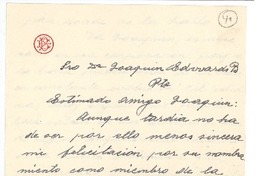 41
Sro Dn Joaquin Edwards B
Pte
Estimado amigo Joaquin:
Aunque tardia no ha
de ser por ello menos sincera
mi felicitación por su nombra
miento como miembro de la